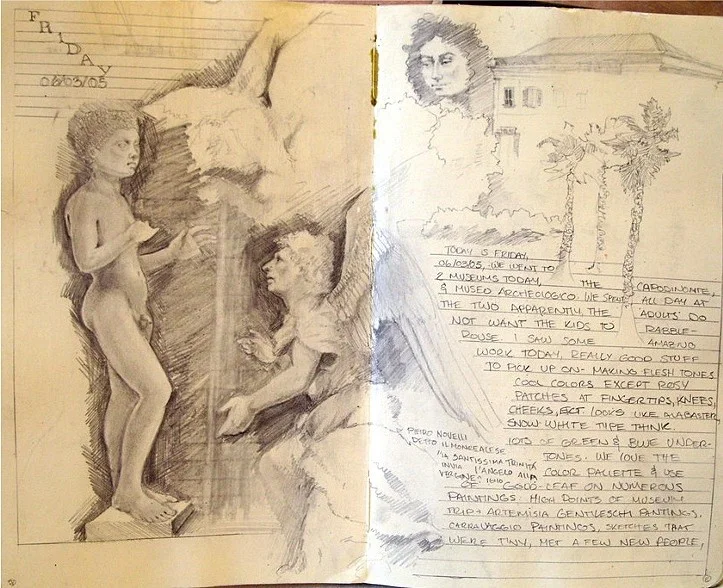 FRIDAY
06/03/05
TODAY IS FRIDAY,
06/03/05, WE WENT TO
2 MUSEUMS TODAY, THE CAPODIMONTE,
& MUSEO ARCHEOLOGICO. WE SPENT ALL DAY AT
THE TWO APPARENTLY, THE 'ADULTS' DO
NOT WANT THE KIDS TO RABBLE-
ROUSE. I SAW SOME AMAZING
WORK TODAY, REALLY GOOD STUFF
TO PICK UP ON- MAKING FLESH TONES
COOL COLORS EXCEPT ROSY
PATCHES AT FINGERTIPS, KNEES,
CHEEKS, ECT LOOKS LIKE ALABASTER,
SNOW WHITE TYPE THINK.
LOTS OF GREEN & BLUE UNDER-
TONES. WE THE
COLOR PALLETE & USE
OF GOLD-LEAF ON NUMEROUS
PAINTINGS. HIGH POINTS OF MUSEUM
TRIP- ARTEMISIA GENTILESCHI PANTINGS,
CARRAVAGGIO PAINTINGS, SKETCHES THAT
WERE TINY, MET A FEW NEW PEOPLE,
PIETRO NOVELLI
DETTO IL MONREALESE
"LA SANTISSIMA TRINITA
INVIA L'ANGELO ALLA
VERGINE"